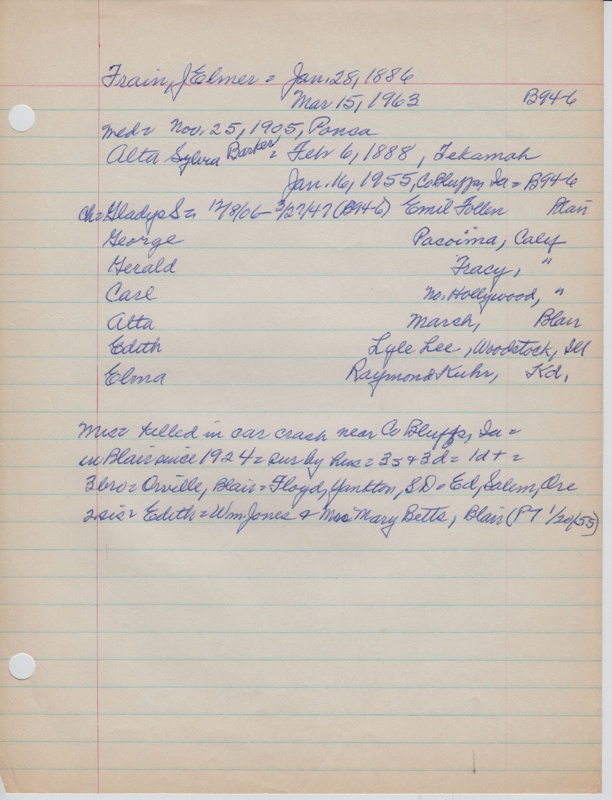 Frain, J Elmer = Jan. 28, 1886
Mar 15, 1963 B946
med = Nov. 25, 1905, Ponca
Alta Sylvia Barker = Feb 6, 1888, Tekamah
Jan. 16, 1955, Co Bluffs, Ia = B946
ch = Gladys S = 12/8/06 - 3/27/47 (B946) Emil Follen Blair
George Pacoima, Calif
Gerald Tracy, "
Carl No. Hollywood, "
Alta March, Blair
Edith Lyle Lee, Woodstock, Ill
Elma Raymond Kuhr, Kd,
Mrs = killed in car crash near Co Bluffs, Ia =
in Blair since 1924 = sur by hus = 3s + 3d = 1d + =
3 bro = Orville, Blair = Floyd, Yankton, S.D = Ed, Salem, Ore
2 sis = Edith = Wm Jones + Mrs Mary Betts, Blair (PT 1/20/55)